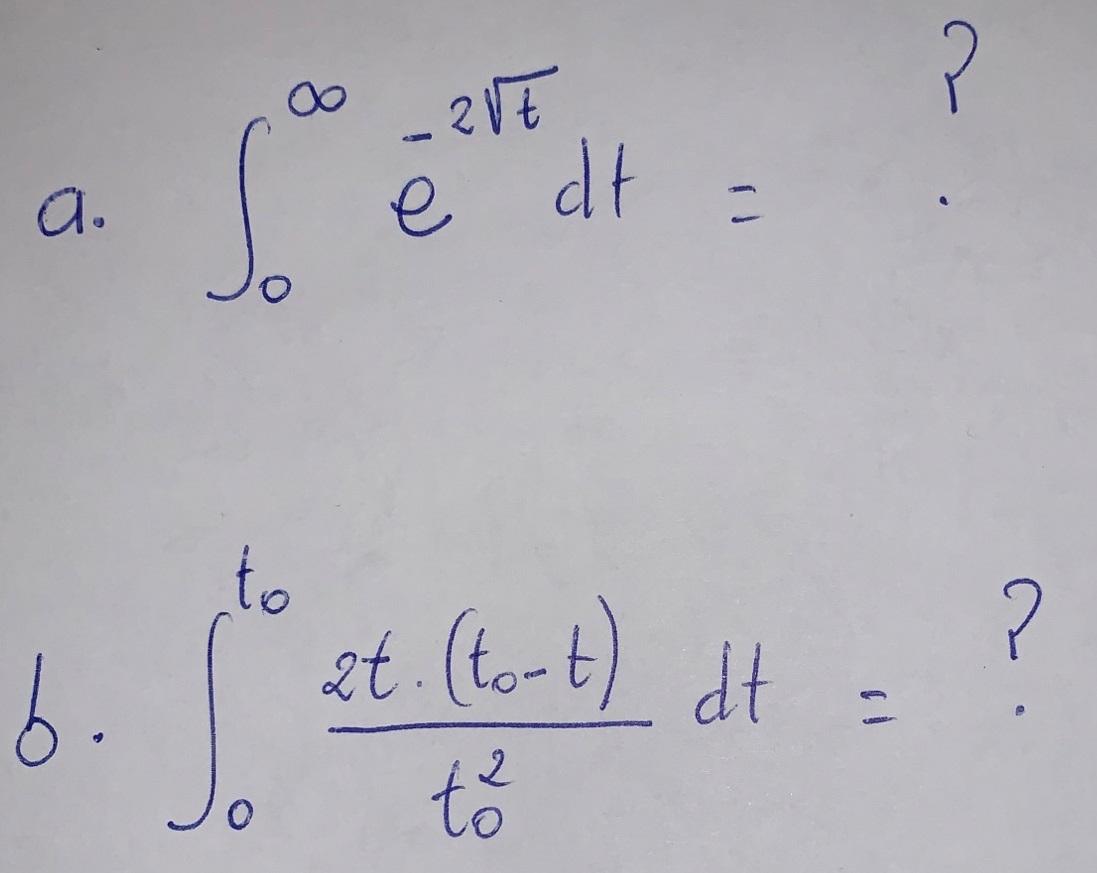 a. ∫₀^∞ e^{-2√t} dt = ?
b. ∫₀^{t₀} \frac{2t.(t₀-t)}{t₀²} dt = ?